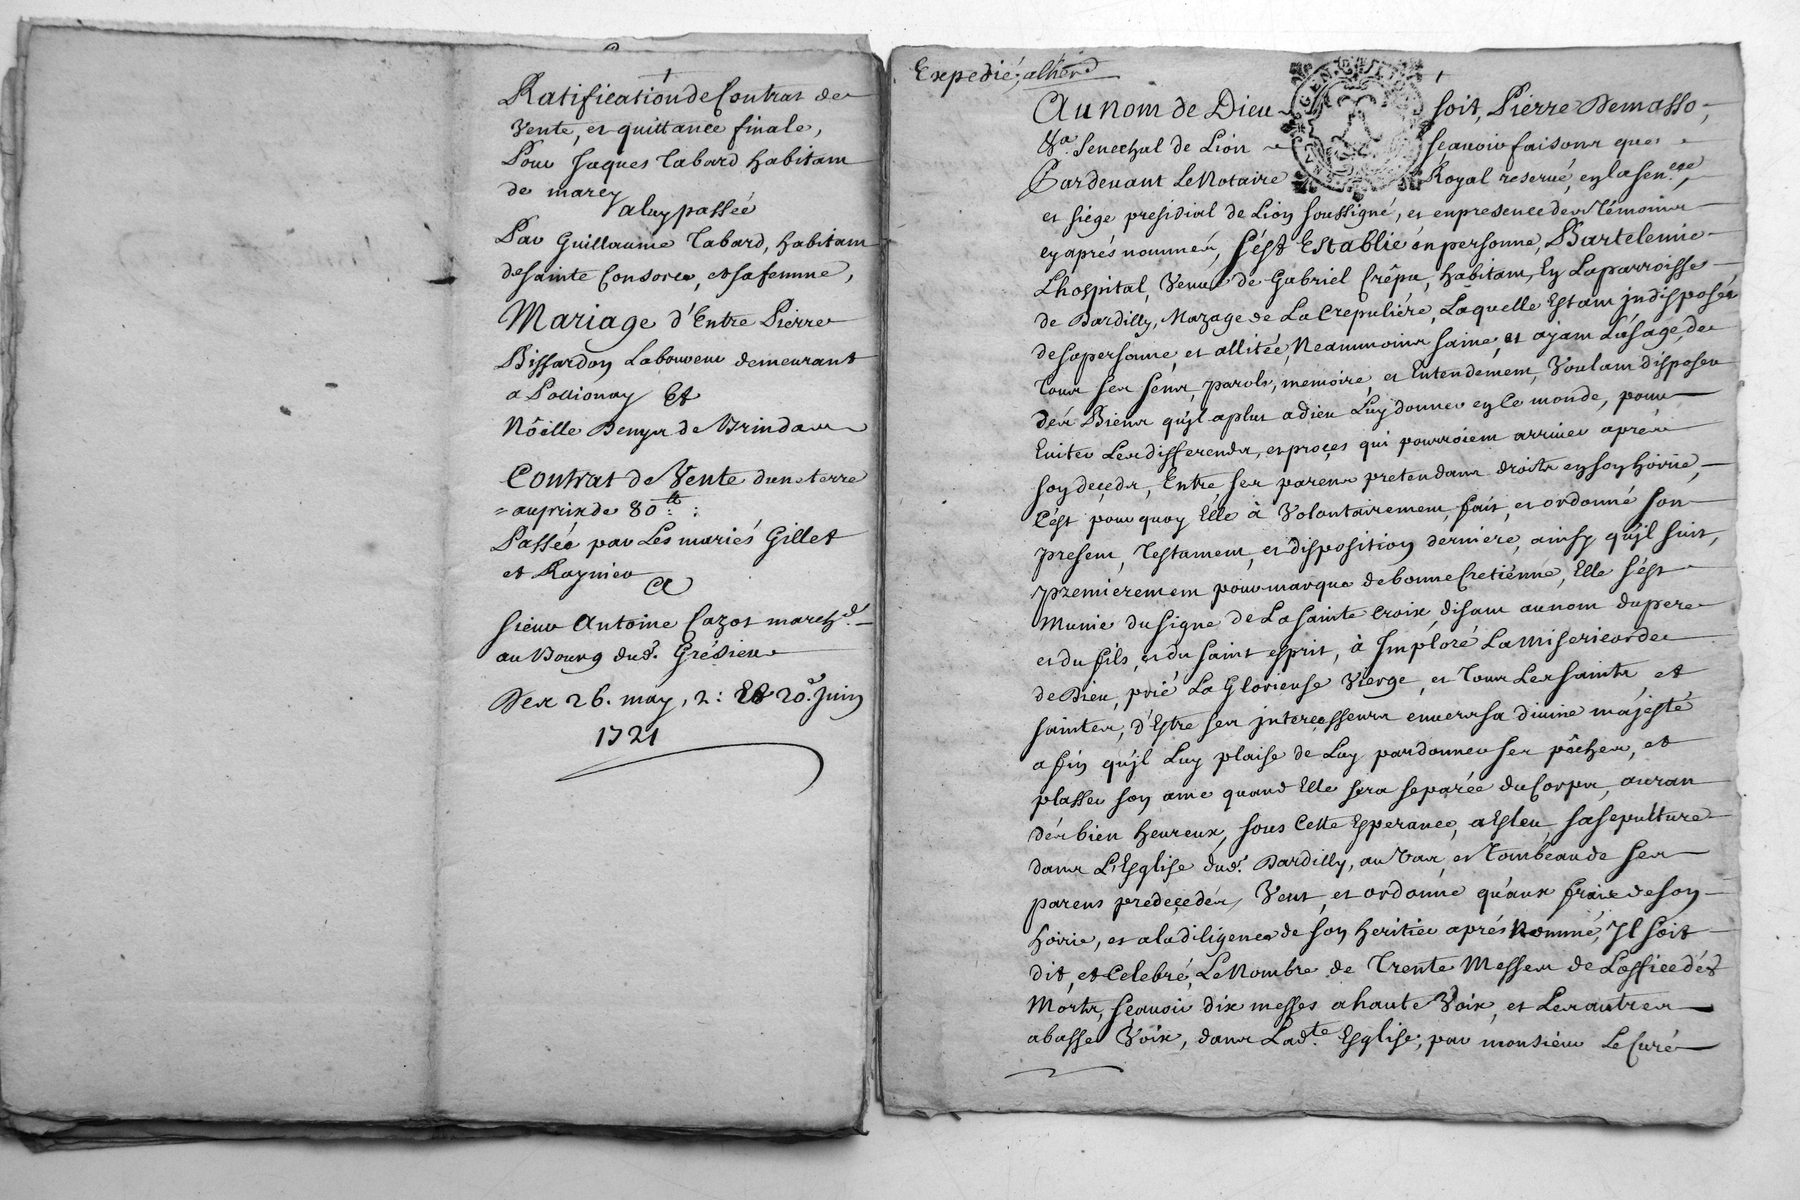 Ratification de Contrat de
Vente, et quittance finale,
Pour Jaques Tabard habitant
de marcy
a luy passée
Par Guillaume Tabard, habitant
de sainte Consorce, et sa femme,
Mariage d'Entre Pierre
Bissardon Laboureur demeurant
a Pollionay Et
Nöelle Denys de Brindas
Contrat de Vente dune terre
= au prix de 80 tt :
Passée par Les mariés Gillet
et Raynieu
A
sieur Antoine Cazot march.d
au Bourg dud. Grésieu
Des 26. may, 2: Et 20.e Juin
1721
Expedié,
Au nom de Dieu soit, Pierre Demasso,
Senechal de Lion sçavoir faisons que
Pardevant Le Notaire Royal reservé, en la sen.cee
et siége presidial de Lion soussigné, et en presence des Témoins
cy aprés nommés, s'ést Establie en personne, Bartelemie
Lhospital, Veuve de Gabriel Crêpu, habitant, En La parroisse
de Dardilly, Mazage de La Crepuliére, Laquelle Estant jndisposée
de sa personne, et allitée, Neanmoins saine, et ayant L'usage, de
tous ses sens, parole, memoire, et Entendement, Voulant disposer
dés Biens qu'jl a plut a Dieu Luy donner en ce monde, pour
Eviter Les differends, et proçes qui pourroient arriver aprés
son deçeds, Entre ses parens pretendans droits en son hoirie,
C'ést pourquoy Elle à Volontairement, fait, et ordonné son
present, Testament, et disposition derniere, ainsy qu'jl suit,
premierement pour marque de bonne Cretiénne, Elle s'ést
Munie du signe de La sainte Croix disant au nom du pere
et du fils, et du saint esprit, à Jmploré La Misericorde
de Dieu, prié La Glorieuse Vierge, et Tous Les saints et
saintes, d'Estre ses jnterçesseurs envers sa divine majésté
afin qu'jl Luy plaise de Luy pardonner ses pêches, et
plasser son ame quand Elle sera separée du Corps, au ran
dés bien heureux, sous Cette Esperance, a Esleu, sa sepulture
dans L'Esglise dud. Dardilly, au Vas, et Tombeau de ses
parens predeçedés, Veut, et ordonne qu'aux fraix de son
hoirie, et a la diligence de son heritier aprés Nommé, Jl soit
dit, et Celebré, Le Nombre de Trente Messes de L'office dés
Morts, sçavoir dix messes a haute Voix, et Les autres
a basse Voix, dans Lad.te Esglise, par monsieur Le Curé